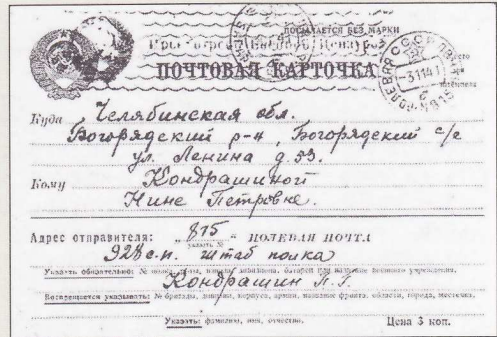 ПОСЫЛАЕТСЯ БЕЗ МАРКИ
Просмотрено Военной Цензурой
ПОЧТОВАЯ КАРТОЧКА
Куда Челябинская обл.
Богорядский р-н, Богорядский с/с
ул. Ленина д. 53.
Кому Кондрашиной
Нине Петровне.
Адрес отправителя: „875" ПОЛЕВАЯ ПОЧТА
указать №
928 с.п. штаб полка
Указать обязательно: № полка, роты, взвода, дивизиона, батареи или название военного учреждения.
Кондрашин П.Г.
Воспрещается указывать: № бригады, дивизии, корпуса, армии, название фронта, области, города, местечка.
Указать: фамилию, имя, отчество.
Цена 3 коп.